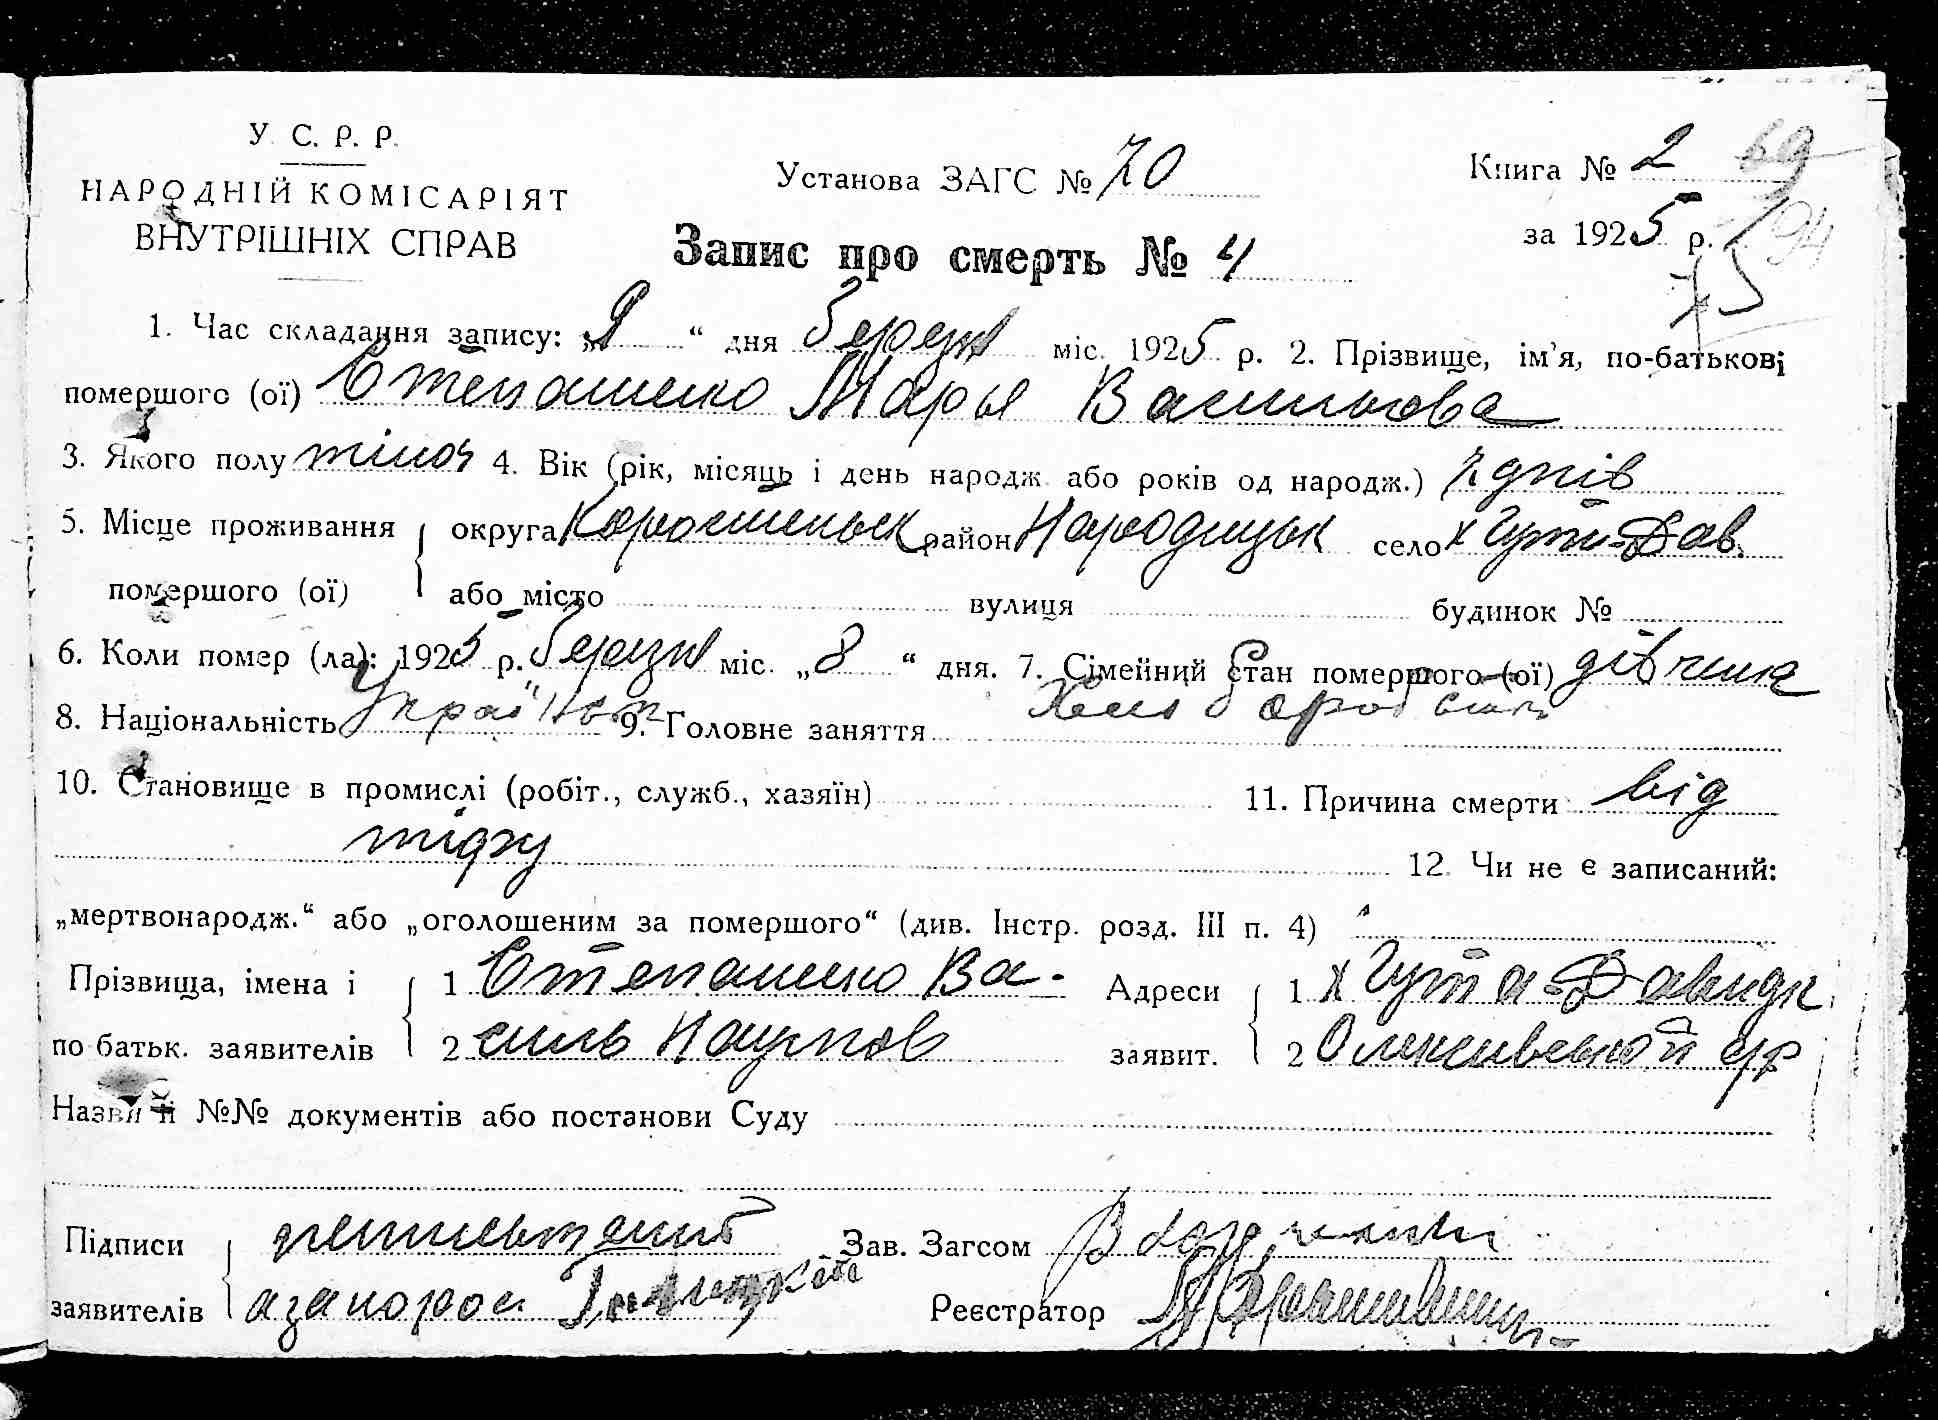 У. С. Р. Р.
НАРОДНІЙ КОМІСАРІЯТ
ВНУТРІШНІХ СПРАВ
Установа ЗАГС № 70
Книга № 2 69
за 1925 р. 94
75
Запис про смерть № 4
1. Час складання запису: „9“ дня березня міс. 1925 р. 2. Прізвище, ім'я, по-батькові
помершого (ої) Степаненко Марья Васильова
3. Якого полу жіноч 4. Вік (рік, місяць і день народж. або років од народж.) 7 днів
5. Місце проживання округа Коростеньск район Народицьк село х Гута-Дав.
помершого (ої) або місто вулиця будинок №
6. Коли помер (ла): 1925 р. березня міс. „8“ дня. 7. Сімейний стан помершого (ої) дівчина
8. Національність Україн 9. Головне заняття Хліборобство
10. Становище в промислі (робіт., служб., хазяїн) 11. Причина смерти від
тіфу
12. Чи не є записаний:
„мертвонародж.“ або „оголошеним за помершого“ (див. Інстр. розд. III п. 4)
Прізвища, імена і 1 Степаненко Ва- Адреси 1 х Гута-Давидк
по батьк. заявителів 2 силь Наумов заявит. 2
Назви й №№ документів або постанови Суду
Підписи Зав. Загсом
заявителів Реєстратор